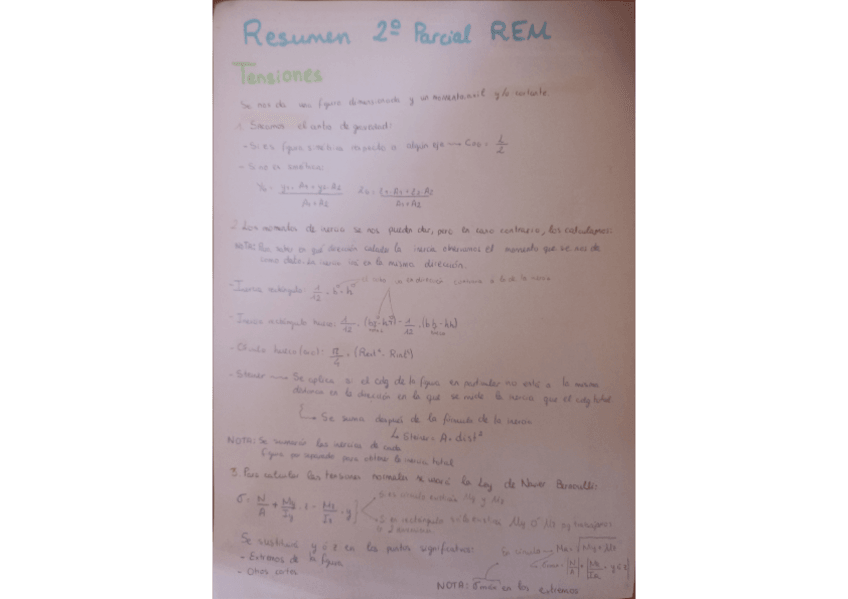 Resumen 2º Parcial REM
Tensiones
Se nos da una figura dimensionada y un momento axil y/o cortante
1. Sacamos el centro de gravedad:
- Si es figura simétrica respecto a algún eje → CDG = L/2
- Si no es simétrica:
YG = y1·A1+y2·A2 / A1+A2 ZG = z1·A1+z2·A2 / A1+A2
2. Los momentos de inercia se nos pueden dar, pero en caso contrario, los calculamos:
NOTA: Para saber en qué dirección calculo la inercia observamos el momento que se nos da
como dato. La inercia irá en la misma dirección.
el cubo va en dirección contraria a la de la inercia
- Inercia rectángulo: 1/12 · b · h³
- Inercia rectángulo hueco: 1/12
- Círculo hueco (sol): π/4 · (Rext⁴ - Rint⁴)
- Steiner → Se aplica si el cdg de la figura en particular no está a la misma
distancia en la dirección en la que se mide la inercia que el cdg total
↳ Se suma después de la fórmula de la inercia
↳ Steiner = A · dist²
NOTA: Se sumarán las inercias de cada
figura por separado para obtener la inercia total
3. Para calcular las tensiones normales se usará la Ley de Navier Bernoulli:
σ = N/A + My/Iy · z - Mz/Iz · y
Si es círculo existirán My y Mz
Si es rectángulo sólo existirá My o Mz
Se sustituirá y ó z en los puntos significativos:
- Extremos de la figura
- Otros cortes
Si círculo → MR = √My²+Mz²
NOTA: σmáx en los extremos